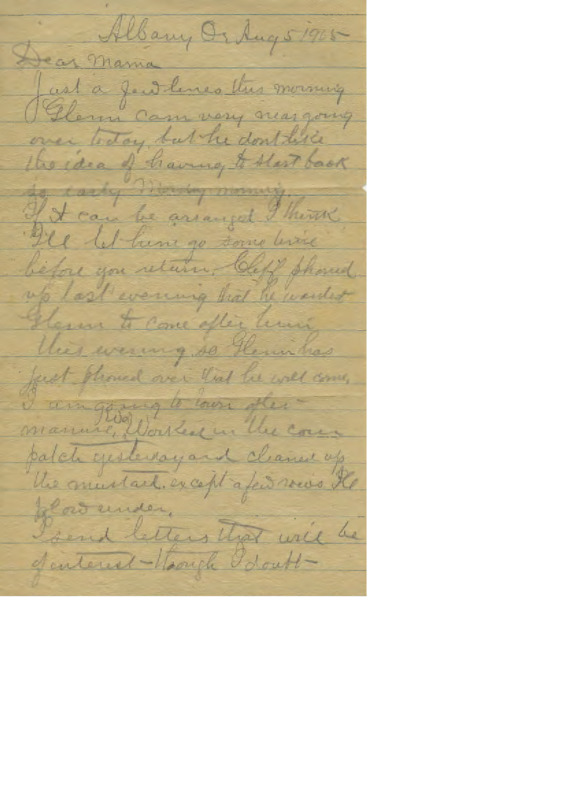 Albany Or Aug 5 1905
Dear Mama
Just a few lines this morning
Glenn cam very near going
over today, but he dont like
the idea of having to start back
so early Monday morning.
If it can be arranged I think
I'll let him go some time
before you return. Cleff phoned
up last evening that he wanted
Glenn to come after him
this evening so Glenn has
just phoned over that he will come.
I am going to town after
manure, We Worked in the corn
patch yesterday and cleaned up
the mustard. except a few rows I'll
plow under.
I send letters that will be
of interest - though I doubt -